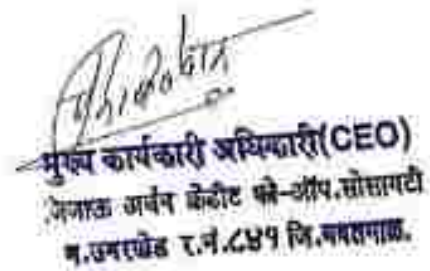 मुख्य कार्यकारी अधिकारी(CEO)
अर्बन क्रेडीट को-ऑप.सोसायटी
म.उमरखेड र.नं.८४१ जि.यवतमाळ.